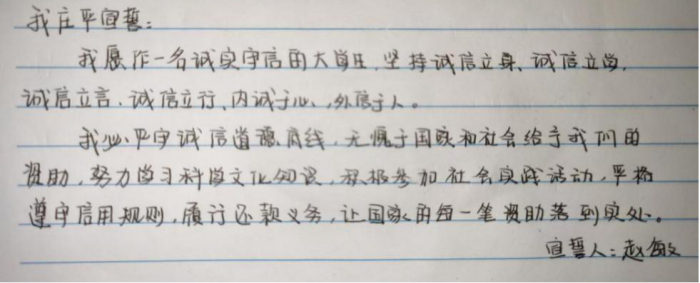 我庄严宣誓：
我愿作一名诚实守信的大学生，坚持诚信立身、诚信立学、
诚信立言、诚信立行、内诚于心、外信于人。
我必严守诚信道德底线，无愧于国家和社会给予我们的
资助，努力学习科学文化知识，积极参加社会实践活动，严格
遵守信用规则，履行还款义务，让国家的每一笔资助落到实处。
宣誓人：赵敏